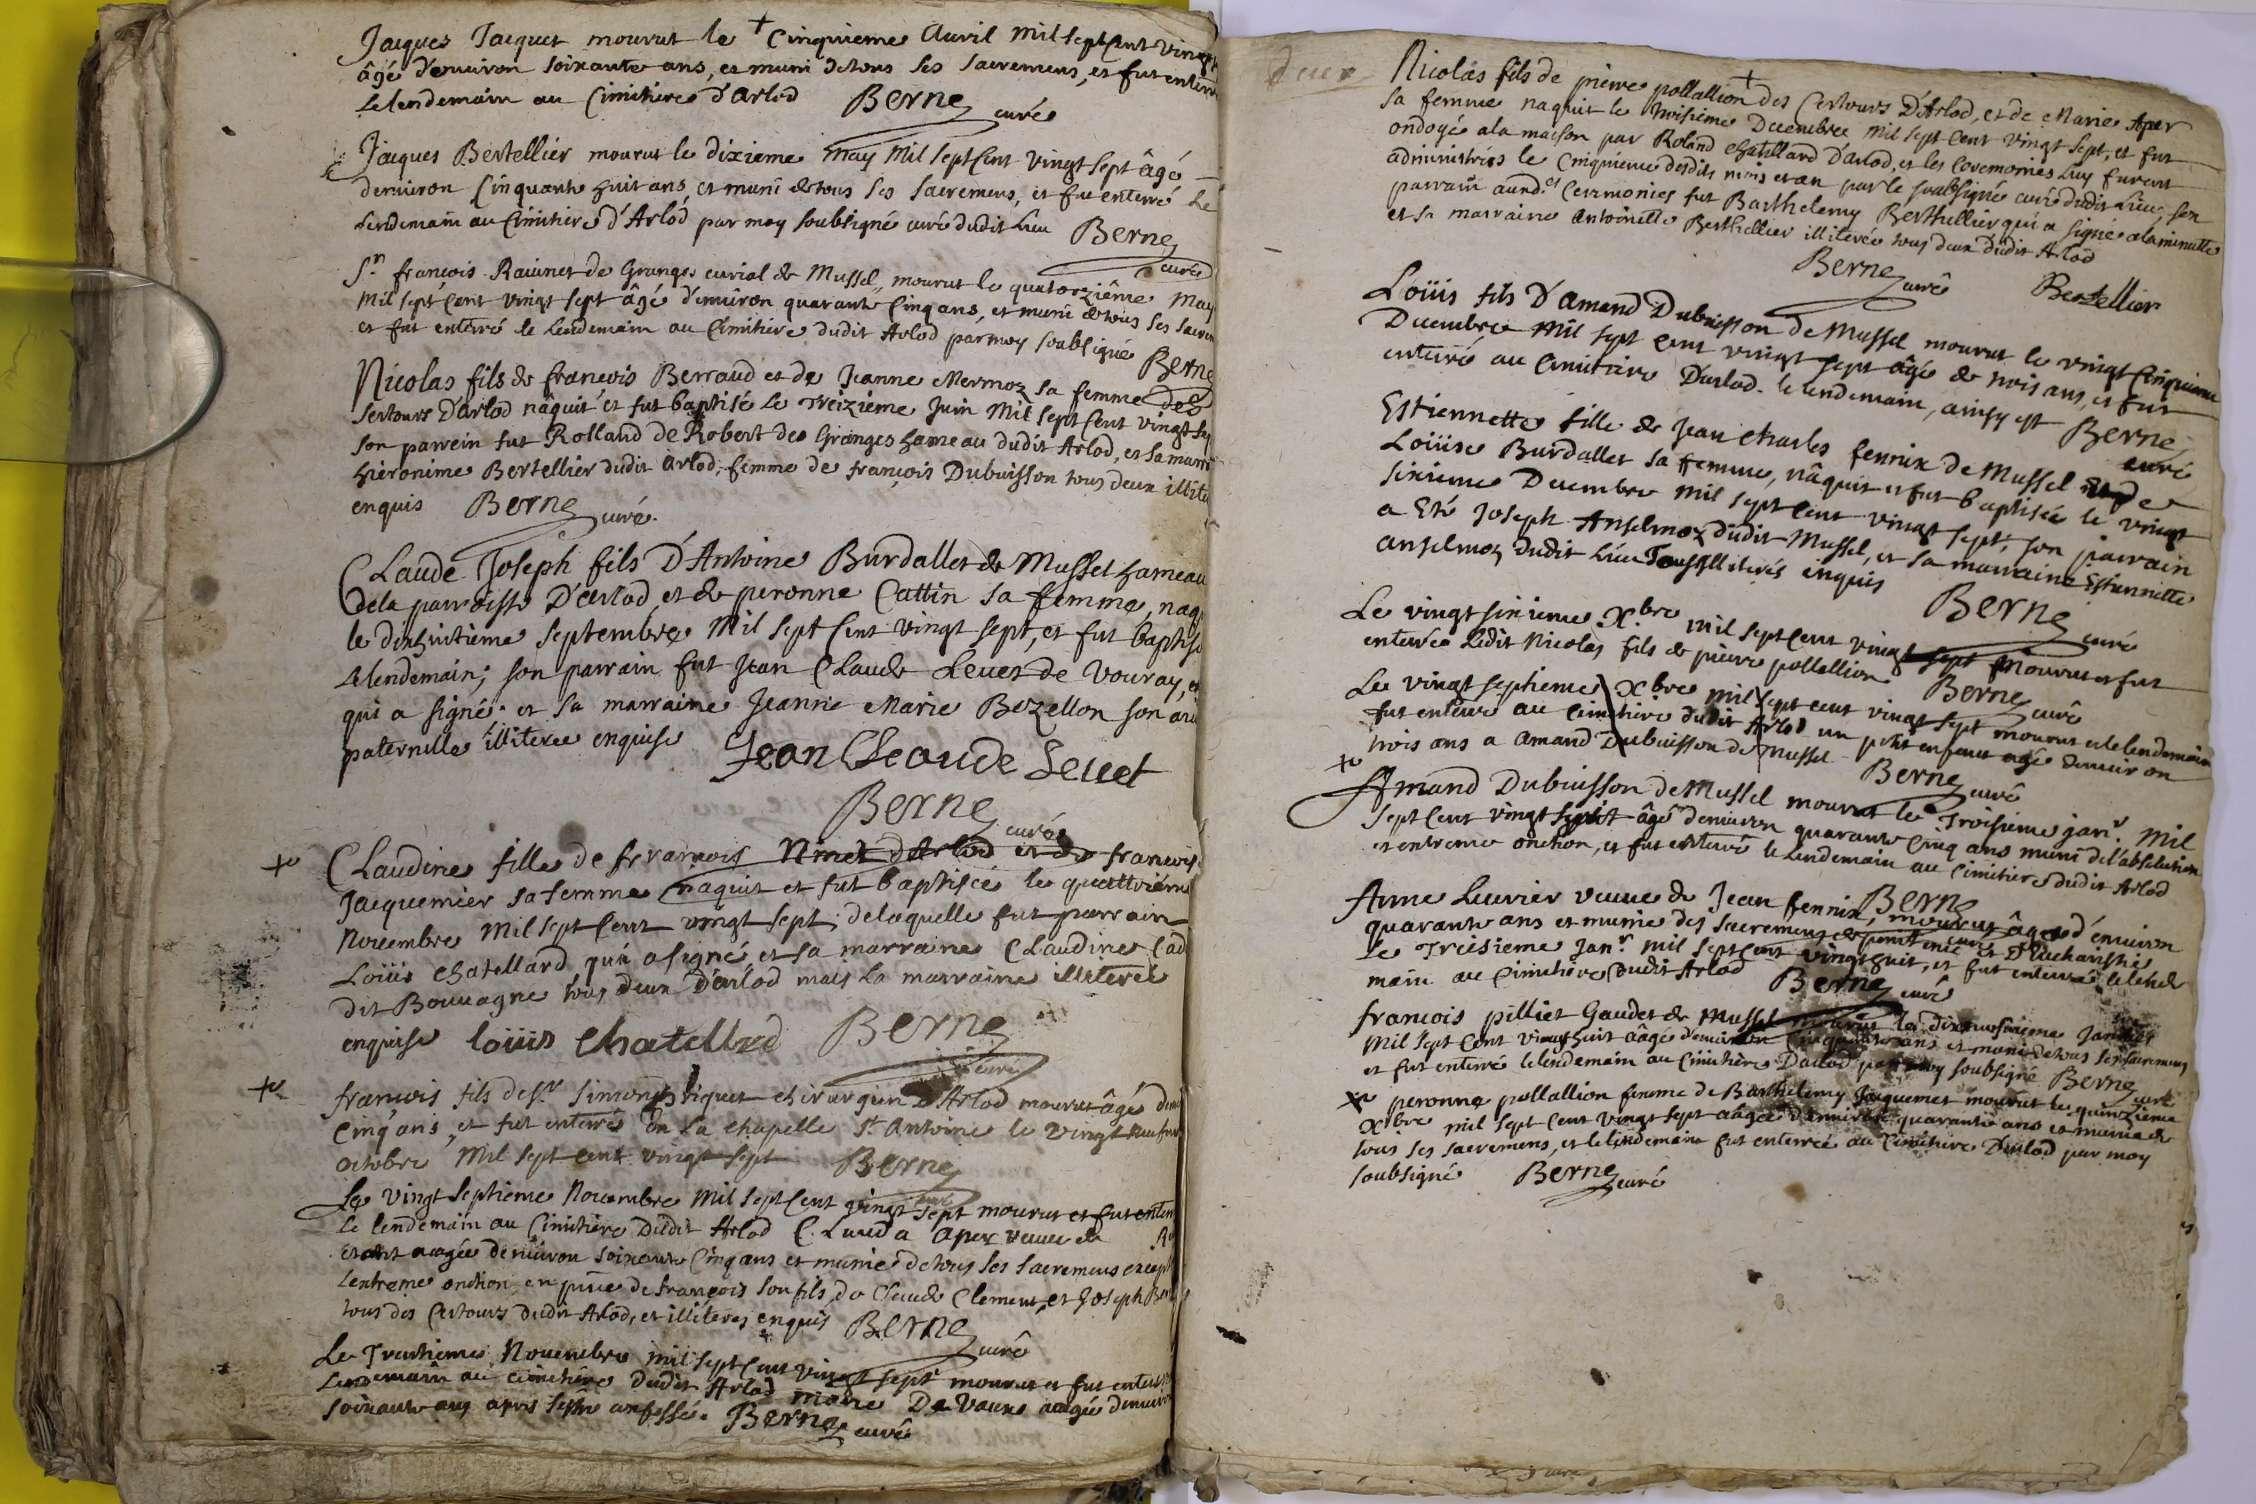 Jacques Jacquet mourut le Cinquieme Auril mil sept Cent vingt
âgé d'enuiron soixante ans, et muni de tous ses sacremens, et fut enterré
le lendemain au Cimitiere d'Arlod Berne curé
Jacques Bertellier mourut le dixieme may mil sept Cent vingt sept âgé
denuiron Cinquante huit ans, et muni de tous ses sacremens, et fut enterré le
lendemain au Cimitiere d'Arlod par moy soubsigné curé dudit Lieu Berne
curé
Sr. françois Rauinet de Granges curial de Mussel, mourut le quatorziême May
mil sept Cent vingt sept âgé d'enuiron quarante Cinq ans, et muni de tous ses sacrem
et fut enterré le lendemain au Cimitiere dudit Arlod par moy soubsigné Berne
Nicolas fils de françois Berraud et de Jeanne Mermoz sa femme des
Sertours d'arlod nâquit et fut baptisé le Treizieme Juin mil sept Cent vingt sep
son parrein fut Rolland de Robert des Granges hameau dudit Arlod, et sa marr
hieronime Bertellier dudit arlod, femme de françois Dubuisson tous deux illite
enquis Berne curé.
Claude Joseph fils d'Antoine Burdallet de Mussel hameau
de la parroisse D'arlod et de peronne Cattin sa femme, naq
le dixhuitieme septembre mil sept Cent vingt sept, et fut baptisé
le lendemain; son parrain fut Jean Claude Leuet de Vouray, et
qui a signé. et sa marraine Jeanne Marie Bozellon son
paternelle illiterée enquise Jean Cleaude Leuet
Berne
curé
Claudine fille de françois Ninet d'Arlod et de françois
Jacquemier sa femme naquit et fut baptisée le quattrieme
Nouembre mil sept Cent vingt sept, de laquelle fut parrain
Loüis Chatellard, qui a signé, et sa marraine Claudine
dit Bouuagne tous deux d'arlod mais la marraine illiteree
enquise loüis Chatellrd Berne
curé
françois fils de Sr. simon riquet chirurgien d'Arlod mourut âgé d'enui
Cinq ans, et fut enterré en la chapelle St. Antoine le vingt neufuie
octobre mil sept cent vingt sept Berne
curé
Le vingt septieme Nouembre mil sept Cent vingt sept mourut et fut enterr
le lendemain au Cimitiere dudit Arlod Clauda Aper veuue de
étant aagée denuiron soixante Cinq ans et munie de tous ses sacremens except
lextreme onction, en pnce de françois son fils, de Claude Clement, et Joseph Bert
tous des Certours dudit Arlod, et illiteres enquis Berne
curé
Le Trentieme Nouembre mil sept Cent vingt sept mourut et fut enterré
Lendemain au cimitiere dudit Arlod marie De Vaux aagée denuiron
soixante ans apres sestre confessée. Berne curé
Nicolas fils de pierre pollallion des Certours D'Arlod, et de Marie Aper
sa femme naquit le troisieme Decembre mil sept Cent vingt sept, et fut
ondoyé a la maison par Roland chatellard d'arlod, et les Ceremonies luy furent
administrées le Cinquieme desdits mois et an par le soubsigné curé dudit Lieu, son
parrain auxd.es Ceremonies fut Barthelemy Berthellier qui a signé a la minutte
et sa marraine Antoinette Berthellier illiterée tous deux dudit Arlod
Berne curé Bertellier
Loüis fils d'Amand Dubuisson de Mussel mourut le vingt Cinquieme
Decembre mil sept Cent vingt sept âgé de trois ans, et fut
enterré au Cimitiere Darlod. le lendemain, ainsy est Berne
curé
Estiennette fille de Jean Charles fenrix de Mussel et de
Loüise Burdallet sa femme, nâquit et fut baptisée le vingt
sixieme Decembre mil sept Cent vingt sept; son parrain
a Eté Joseph Anselmoz dudit Mussel, et sa marraine Estiennette
anselmoz dudit Lieu Tous illiterés enquis Berne
curé
Le vingt sixieme Xbre mil sept Cent vingt sept mourut et fut
enterré ledit Nicolas fils de pierre pollallion Berne
curé
Le vingt septieme Xbre mil sept cent vingt sept mourut et le lendemain
fut enterré au Cimitiere dudit Arlod un petit enfant agé denuiron
trois ans a Amand Dubuisson de Mussel Berne curé
Amand Dubuisson de Mussel mourut le Troisieme janr mil
sept Cent vingt huit âgé denuiron quarante Cinq ans muni de l'absolution
et extreme onction, et fut enterré le lendemain au Cimitiere dudit Arlod
Berne
curé
Anne Luurier veuue de Jean fennix, mourut âgée d'enuiron
quarante ans et munie des sacremens de penitence et d'Eucharistie
Le Treisieme Janr mil sept Cent vingt huit, et fut enterrée le lende
main au Cimitiere dudit Arlod Berne curé
françois pilliet Gaudet de Mussel mourut le dixneufuieme Januier
mil sept Cent vingt huit âagé denuiron Cinquante ans et muni de tous ses sacremens
et fut enterré le lendemain au Cimitiere Darlod par moy soubsigné Berne curé
peronne pollallion femme de Barthelemy Jaquemet mourut le quinzieme
Xbre mil sept Cent vingt sept aagée denuiron quarante ans et munie de
tous ses sacremens, et le lendemain fut enterrée au Cimitiere Darlod par moy
soubsigné Berne curé